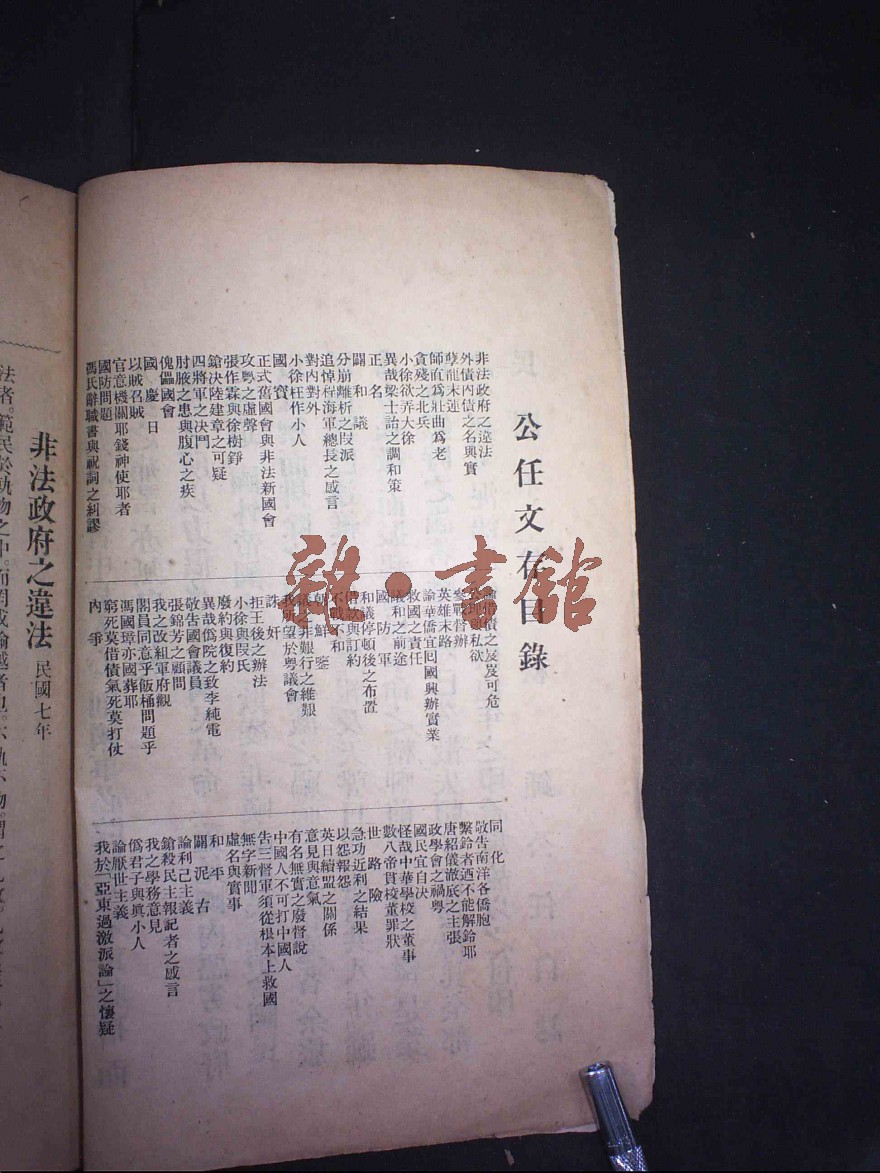 公任文存目錄
非法政府之違法
外債內債之名與實
孽龍末運
師直為壯曲為老
貪殘之北兵
小徐欲弄大徐
異哉梁士詒之調和策
正名
闢和議
分崩離析之段派
追悼程海軍總長之感言
對內對外
小徐枉作小人
國賣
正式舊國會與非法新國會
攻粵之虛聲
張作霖與徐樹錚
鎗決陸建章之可疑
四將軍之決鬥
肘腋之患與腹心之疾
傀儡國會
國慶日
以賊召賊
官意機關耶錢神使耶者
國防問題
馮氏辭職書與祝詞之糾謬
論借債之岌岌可危
私欲
參戰督辦
英雄末路
論華僑宜囘國興辦實業
救國之責任
議和之前途
國防軍
和議停頓後之布置
借款與訂約
不戰不和
朝鮮鑒
議之非艱行之維艱
我所望於粵議會
誅奸
拒王後之辦法
小徐與段氏
廢約與復約
異哉僞院之致李純電
敬告國會議員
張錦芳之顧問
我之改組軍府觀
閣員同意乎飯桶問題乎
馮國璋亦國葬耶
窮死莫借債氣死莫打仗
內爭
同化
敬告南洋各僑胞
繫鈴者酒不能解鈴耶
唐紹儀澈底之主張
政學會之禍粵
國民宜自決
怪哉中華學校之董事
數八帝貫校董罪狀
世路險
急功近利之結果
以怨報怨
英日續盟之關係
意見與意氣
有名無實之廢督說
中國人不可打中國人
告三督軍須從根本上救國
無字新聞
虛名與實事
和平
闢泥古
論利己主義
鎗殺民主報記者之感言
我之學務意見
僞君子與眞小人
論厭世主義
我於「亞東過激派論」之懷疑
雜·書館
非法政府之違法 民國七年